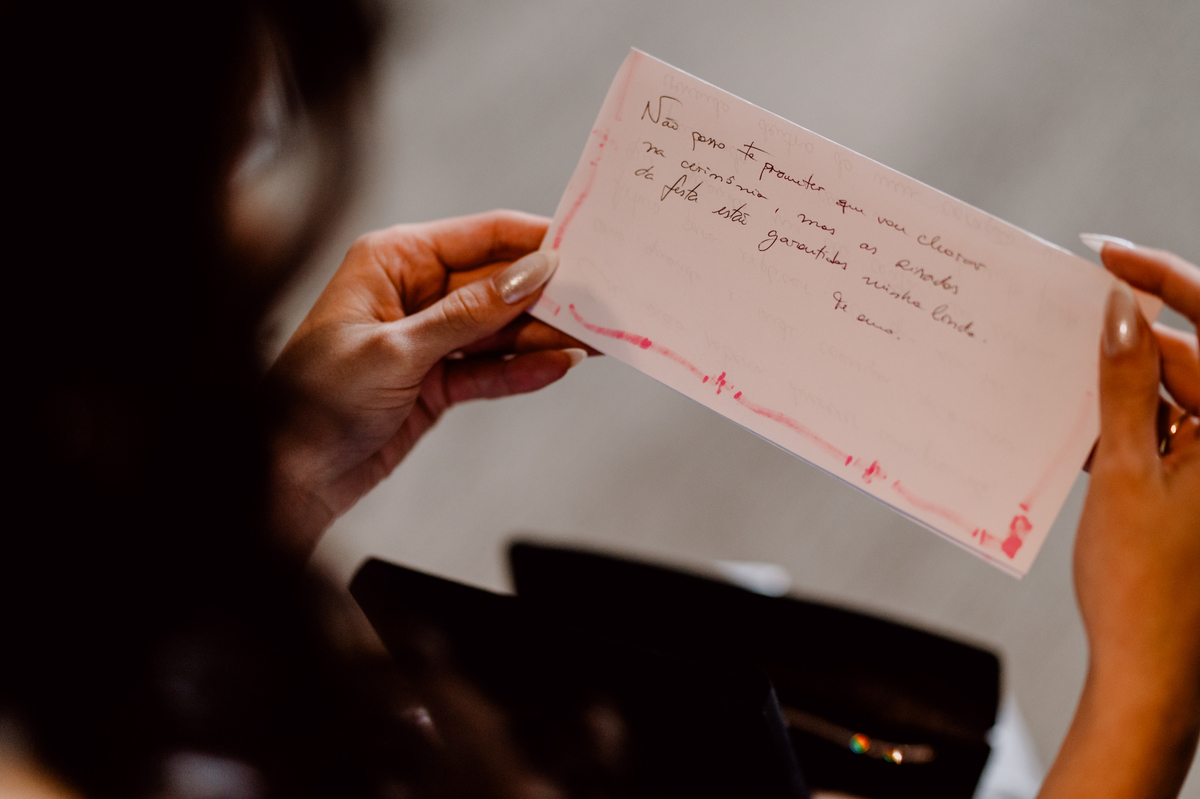 Não posso te prometer que vou chorar
na cerimônia, mas as risadas
da festa estão garantidas minha linda.
Te amo.